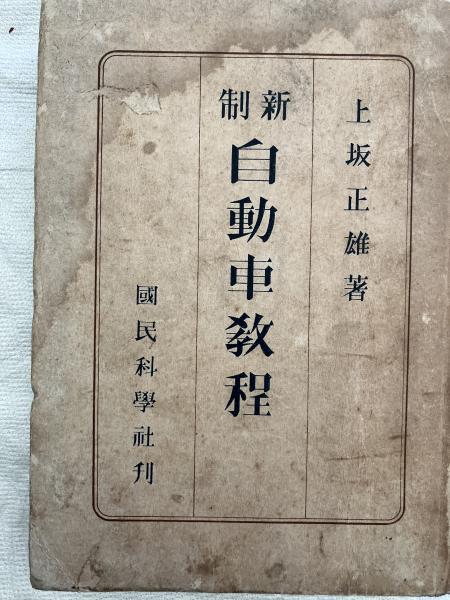 上坂正雄著
新制
自動車教程
國民科學社刊